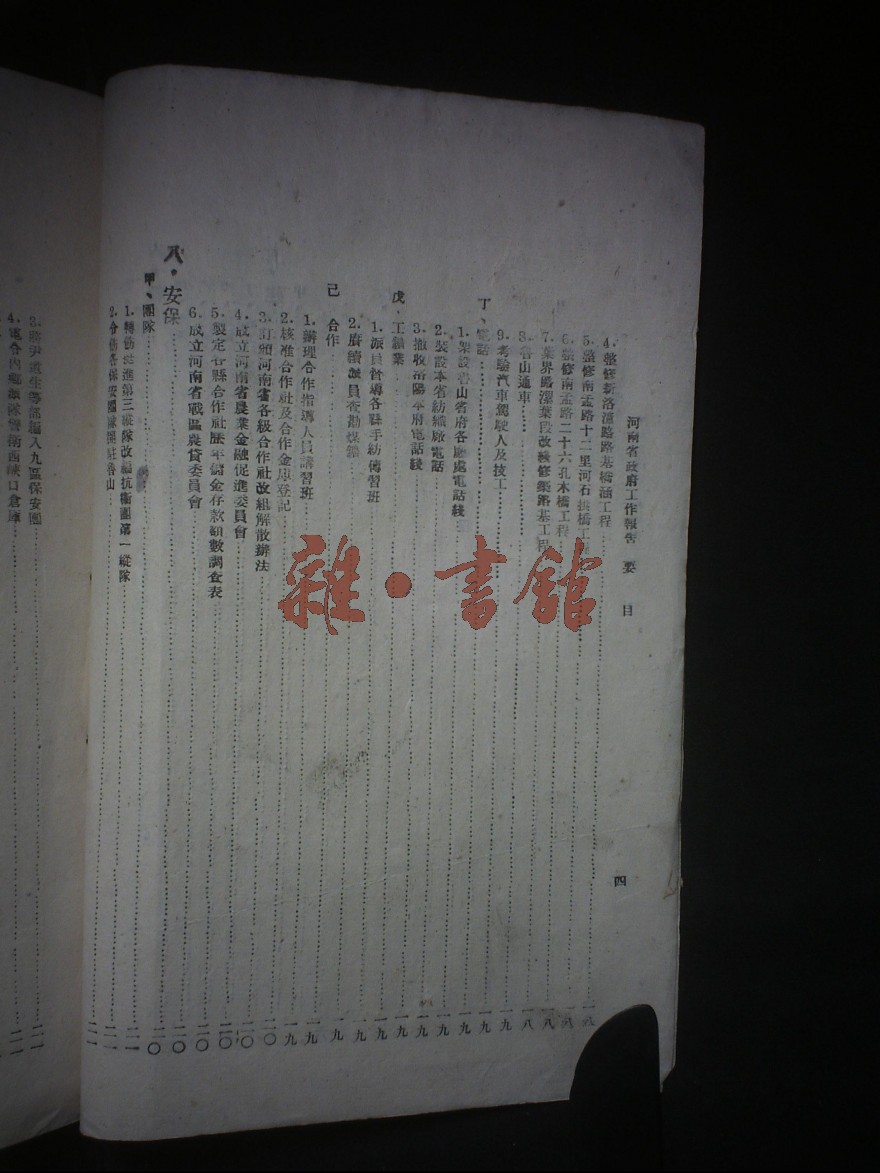 河南省政府工作報告 要目 四
4.整修新洛潼路路基橋涵工程 一八
5.整修南孟路十二里河石拱橋工 一八
6.整修南孟路二十六孔木橋工程 一八
7.葉界路漯葉段改綫修築路基工程 一八
8.魯山通車 一八
9.考驗汽車駕駛人及技工 一九
丁、電話 一九
1.架設魯山省府各廳處電話綫 一九
2.裝設本省紡織廠電話 一九
3.撤收洛陽本府電話綫 一九
戊、工鑛業 一九
1.派員督導各縣手紡傳習班 一九
2.賡續派員查勘煤鑛 一九
己 合作 一九
1.辦理合作指導人員講習班 一九
2.核准合作社及合作金庫登記 一九
3.訂頒河南省各級合作社改組解散辦法 二〇
4.成立河南省農業金融促進委員會 二〇
5.製定各縣合作社歷年儲金存款額數調查表 二〇
6.成立河南省戰區農貸委員會 二〇
八・安保 二〇
甲、團隊 二〇
1.轉飭挺進第三縱隊改編抗衛團第一縱隊 二一
2.分飭各保安團隊開駐魯山 二一
3.將尹道生等部編入九區保安團 二一
4.電令內鄉派隊警衛西峽口倉庫 二一
雜・書館